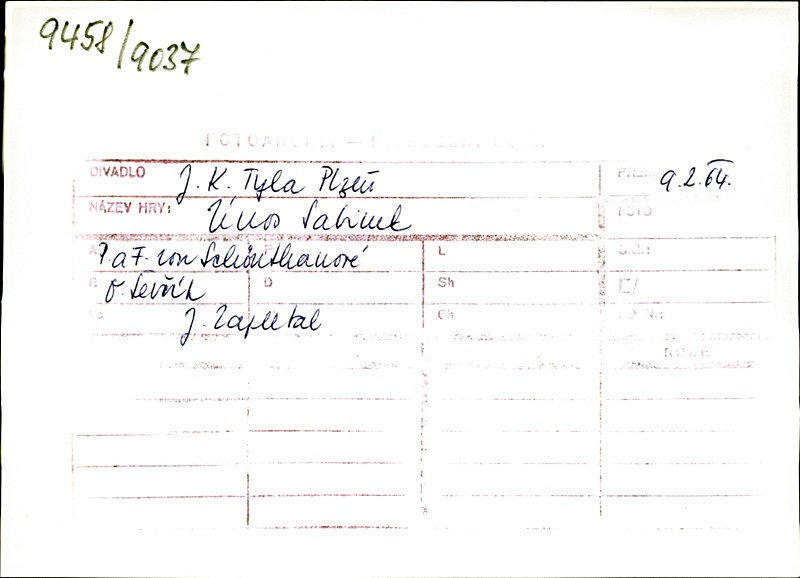 9458/9037
DIVADLO J. K. Tyla Plzeň 9.2.64.
NÁZEV HRY: Únos Sabinek FOTO
P. a F. von Schönthanové L
R O. Ševčík D Sh E/
J. Zapletal Ch
ROLE